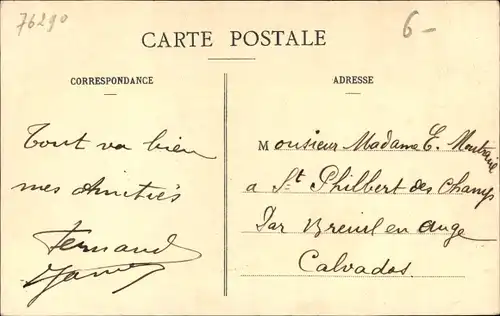 76290
6-
CARTE POSTALE
CORRESPONDANCE
ADRESSE
Tout va bien
mes amitiés
Fernand
Monsieur Madame E.
a St Philbert des Champs
Par Breuil en Auge
Calvados.